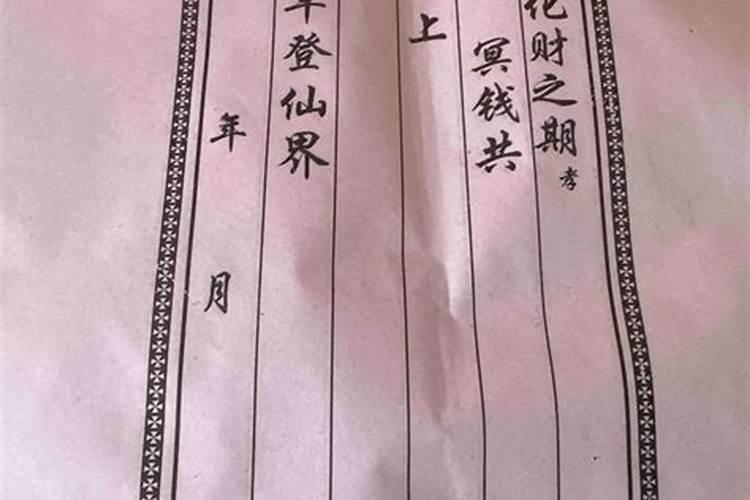 化财之期 孝
冥钱共
上
早登仙界
年 月